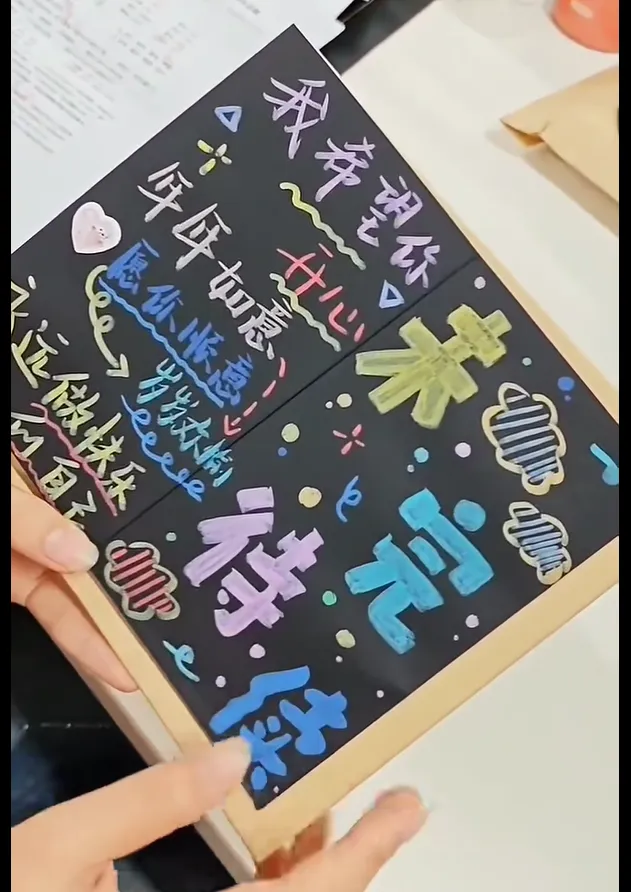 我希望你
开心
年年如意
愿你顺意
岁岁欢愉
永远做快乐
的自己
未完
待续